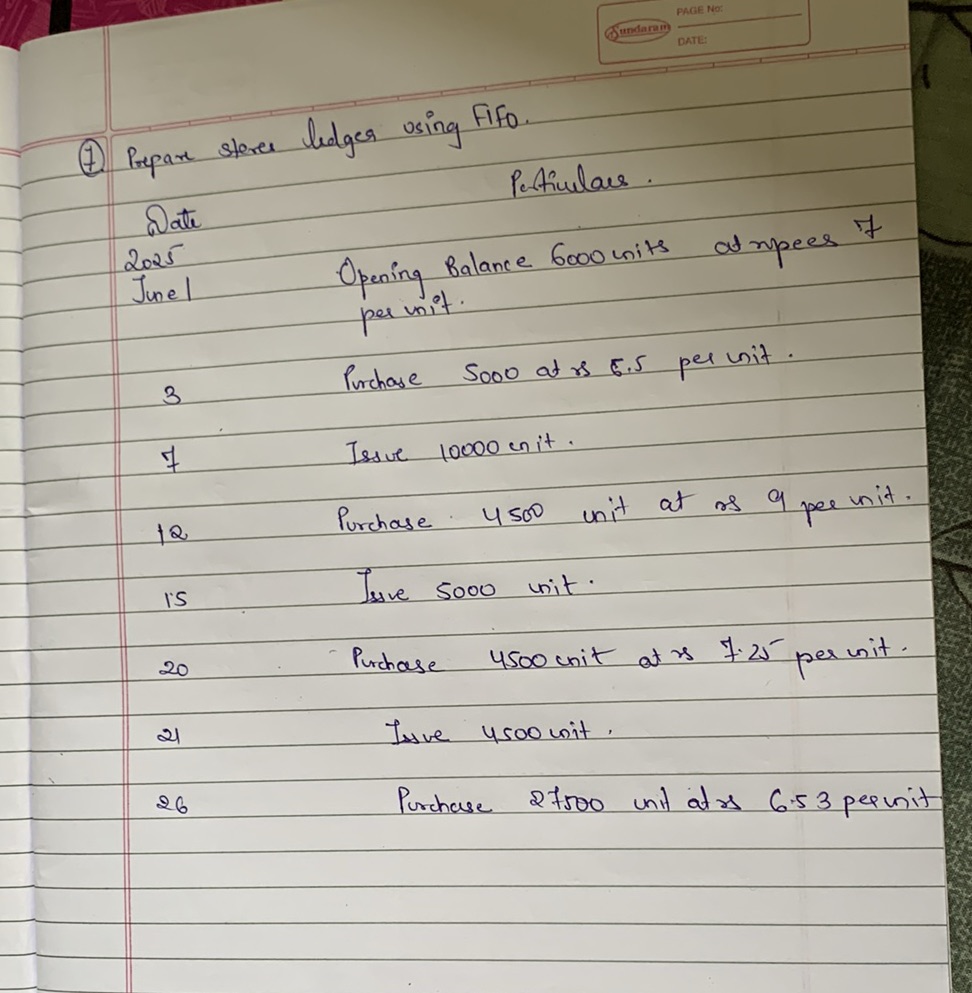 Sundaram
PAGE No:
DATE:
7 Prepare stores ledger using FIFO.
Date Particulars.
2025
June 1 Opening Balance 6000 units at rupees 7
per unit.
3 Purchase 5000 at rs 5.5 per unit.
7 Issue 10000 unit.
12 Purchase 4500 unit at rs 9 per unit.
15 Issue 5000 unit.
20 Purchase 4500 unit at rs 7.25 per unit.
21 Issue 4500 unit.
26 Purchase 27500 unit at rs 6.53 per unit